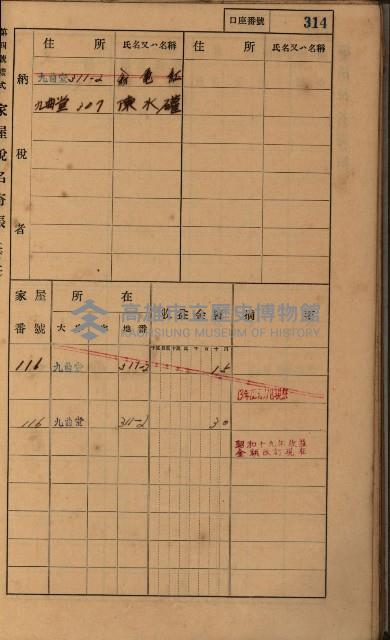 口座番號 314
第四號樣式 家屋稅名寄帳
納稅者
住所 氏名又ハ名稱 住所 氏名又ハ名稱
九曲堂 311-2
九曲堂 307 陳水碓
家屋番號 所在 收益金額 摘要
大字 字 地番
116 九曲堂 311-2 15
116 九曲堂 311-2 30
昭和十九年收益
金額改訂現在
高雄市立歷史博物館
KAOHSIUNG MUSEUM OF HISTORY